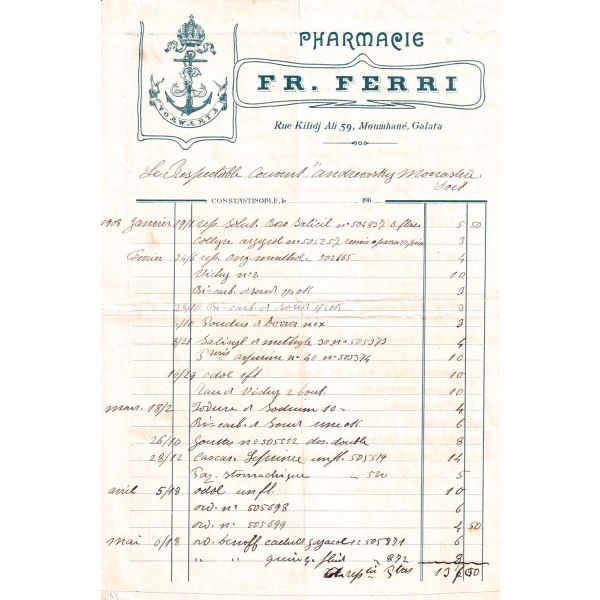 PHARMACIE
FR. FERRI
VORWÆRTS
Rue Kilidj Ali 59, Moumhané, Galata
Le Respectable Couvent "andreusky Monastir
Doit
CONSTANTINOPLE, le 190
1908 Janvier 19/1 rep. Solut. Boro Salicil nº 504837 3 5 50
Collyre argyrol nº 505257 3
Fevrier 24/6 rep. ong. menthol. 502165 4
Vichy nº 2 10
Bicarb. d Soud 1/2 ok 3
23/10 Bicarb. d Soud 1/2 ok 3
5/10 Poudre d Dover nº x 3
8/21 Salicyl d methyle 30 nº 505373 4
aspirine nº 40 nº 505374 10
16/29 odol 1 fl 10
Eau d Vichy 2 bout. 10
mars. 18/2 Iodure d Sodium 10 - 4
Bicarb. d Soud une ok 6
26/10 Gouttes nº 505512 dos. double 8
28/12 Cascara Leprince un fl. 505519 14
stomachique " 520 5
avril 5/18 odol un fl. 10
ord. nº 505698 6
ord. nº 505699 4 50
mai 6/18 ord. gayacol 12 505871 6
" " fluid " 872 8
13 50